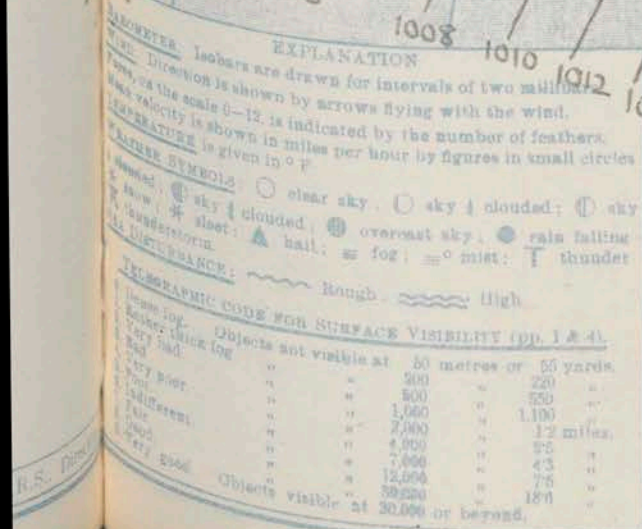 1008
1010
1012
EXPLANATION
BAROMETER. Isobars are drawn for intervals of two
WIND. Direction is shown by arrows flying with the wind.
Force, on the scale 0–12, is indicated by the number of feathers.
velocity is shown in miles per hour by figures in small circles
TEMPERATURE is given in ° F
WEATHER SYMBOLS: clear sky, sky clouded; sky
clouded; sky clouded; overcast sky; rain falling
snow; sleet; hail; fog; mist; T thunder
thunderstorm.
SEA DISTURBANCE: Rough. High
TELEGRAPHIC CODE FOR SURFACE VISIBILITY (pp. 1 & 4).
Dense fog. Objects not visible at 50 metres or 55 yards.
thick fog " " 200 " 220 "
Very bad " " 500 " 550 "
Bad " " 1,000 " 1,100 "
Very poor " " 2,000 " 1·2 miles.
Poor " " 4,000 " "
Indifferent " " 7,000 " 4·3 "
Fair " " 12,000 " 7·5 "
Good " " 30,000 " 18·6 "
Very good Objects visible at 30,000 or beyond.
R.S.